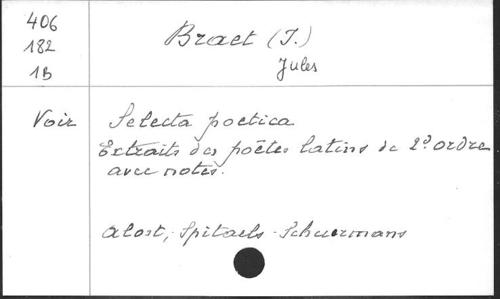 406
182
1B
Braet (J.)
Jules
Voir
Selecta poetica
Extraits des poëtes latins de 2e ordre
avec notes.
Alost, Spitaels-Schuermans